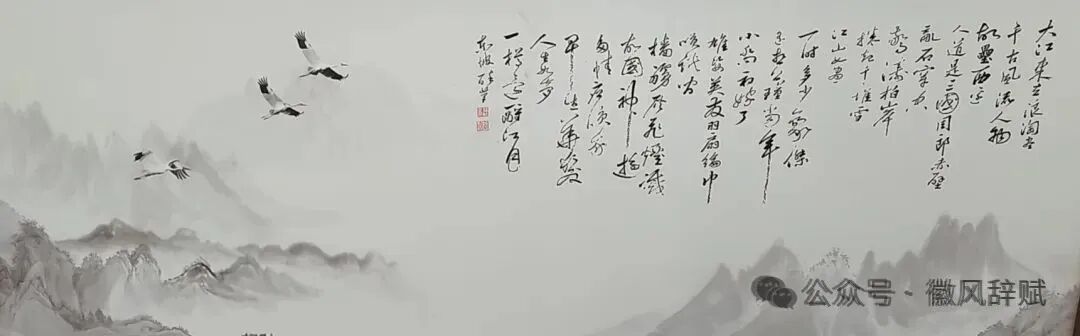 大江东去浪淘尽
千古风流人物
故垒西边
人道是三國周郎赤壁
亂石穿空
驚濤拍岸
捲起千堆雪
江山如畫
一時多少豪傑
遥想公瑾當年
小喬初嫁了
雄姿英發羽扇綸巾
談笑間
檣櫓灰飛煙滅
故國神遊
多情應笑我
早生華髮
人生如夢
一樽還酹江月
东坡
公众号·徽风辞赋